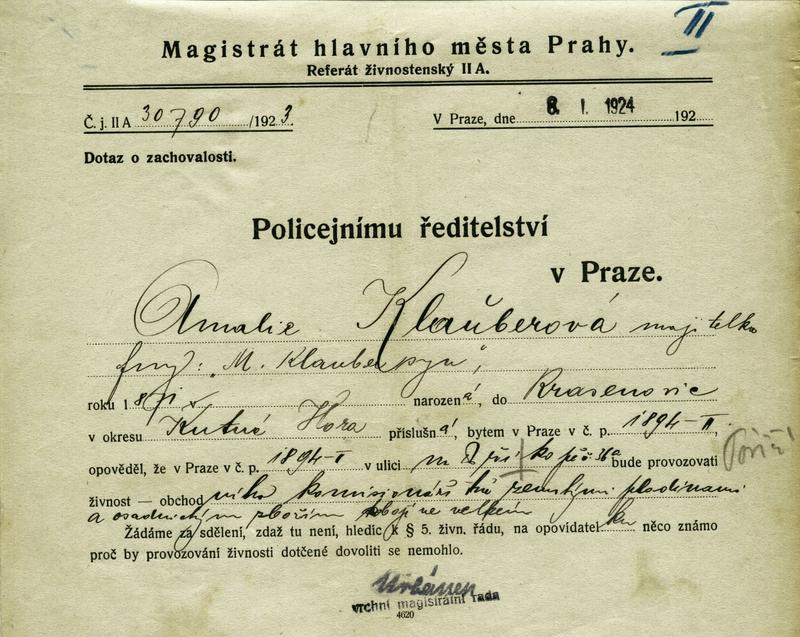 II
Magistrát hlavního města Prahy.
Referát živnostenský II A.
Č. j. II A 30790 /1923.
V Praze, dne 8. I. 1924 192
Dotaz o zachovalosti.
Policejnímu ředitelství
v Praze.
Amalie Klauberová majitelka
firmy: „M. Klauber
roku 18 narozená, do Krasenovic
v okresu Kutné Hora příslušná, bytem v Praze v č. p. 1894-II,
opověděl, že v Praze v č. p. 1894-I v ulici bude provozovati Poříčí
živnost — obchod komisionářský zemskými plodinami
a osadnickým zbožím obojí ve velkém
Žádáme za sdělení, zdaž tu není, hledíc k § 5. živn. řádu, na opovidatelku něco známo
proč by provozování živnosti dotčené dovoliti se nemohlo.
Urbánek
vrchní magistrátní rada
4620